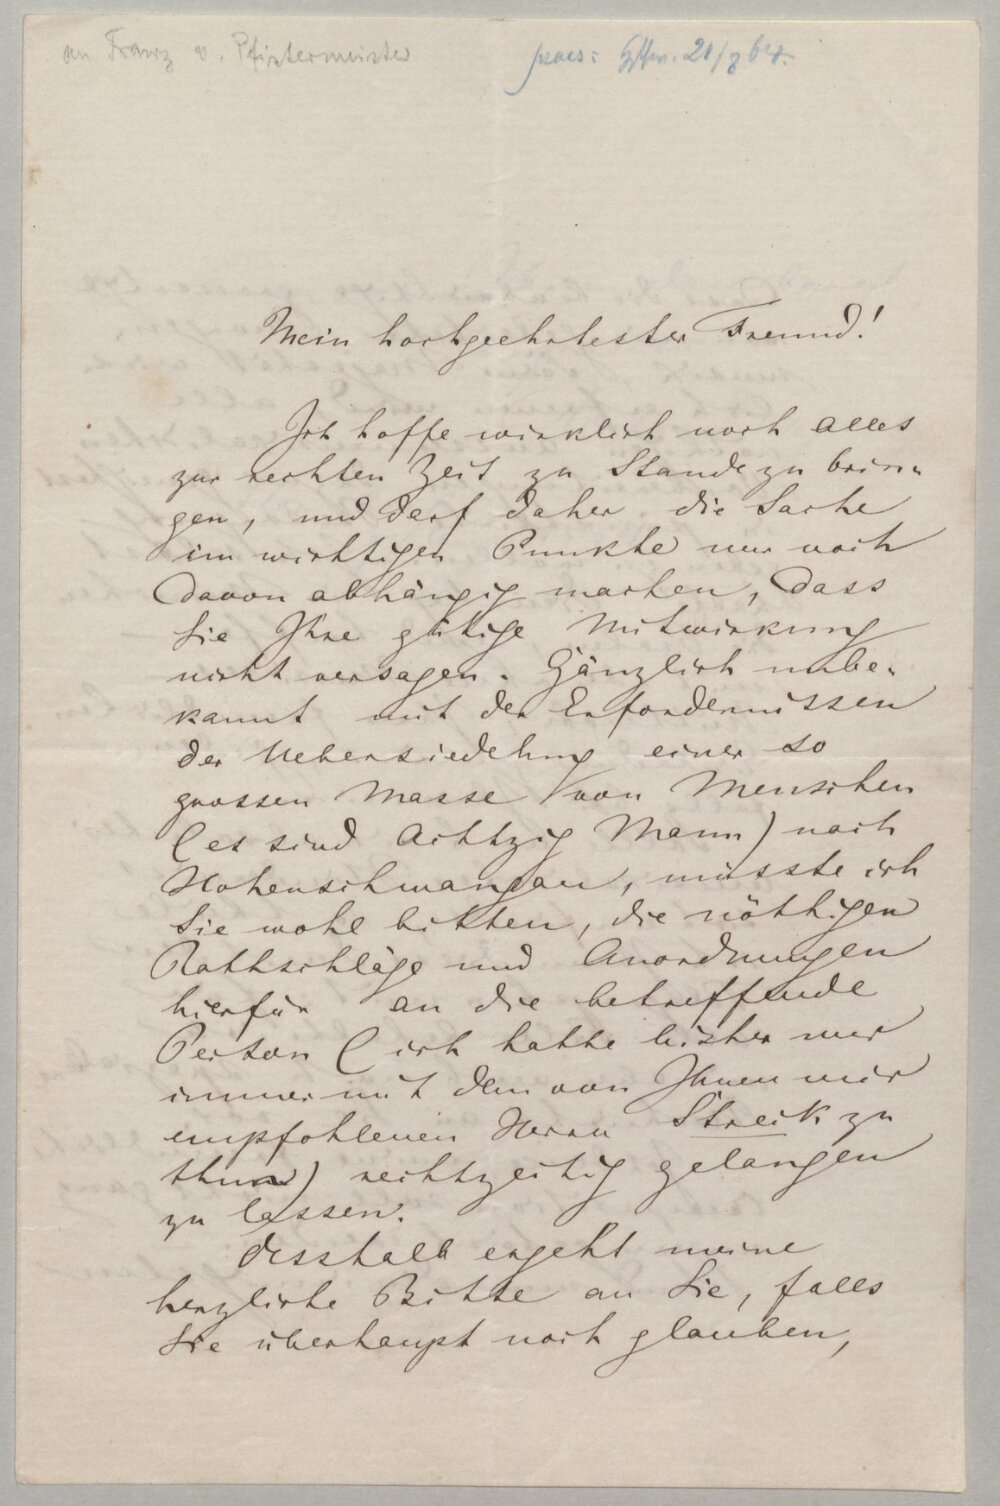 an Franz v. Pfistermeister
praes: Hschw. 21/8 64.
Mein hochgeehrtester Freund!
Ich hoffe wirklich noch alles
zur rechten Zeit zu Stande zu brin-
gen, und darf daher die Sache
im wichtigen Punkte nur noch
davon abhängig machen, dass
Sie Ihre gütige Mitwirkung
nicht versagen. Gänzlich unbe-
kannt mit den Erfordernissen
der Uebersiedelung einer so
grossen Masse von Menschen
(es sind Achtzig Mann) nach
Hohenschwangau, müsste ich
Sie wohl bitten, die nöthigen
Rathschläge und Anordnungen
hierfür an die betreffende
Person (ich hatte bisher nur
immer mit dem von Ihnen mir
empfohlenen Herrn Streck zu
thun) rechtzeitig gelangen
zu lassen.
Desshalb ergeht meine
herzliche Bitte an Sie, falls
Sie überhaupt noch glauben,